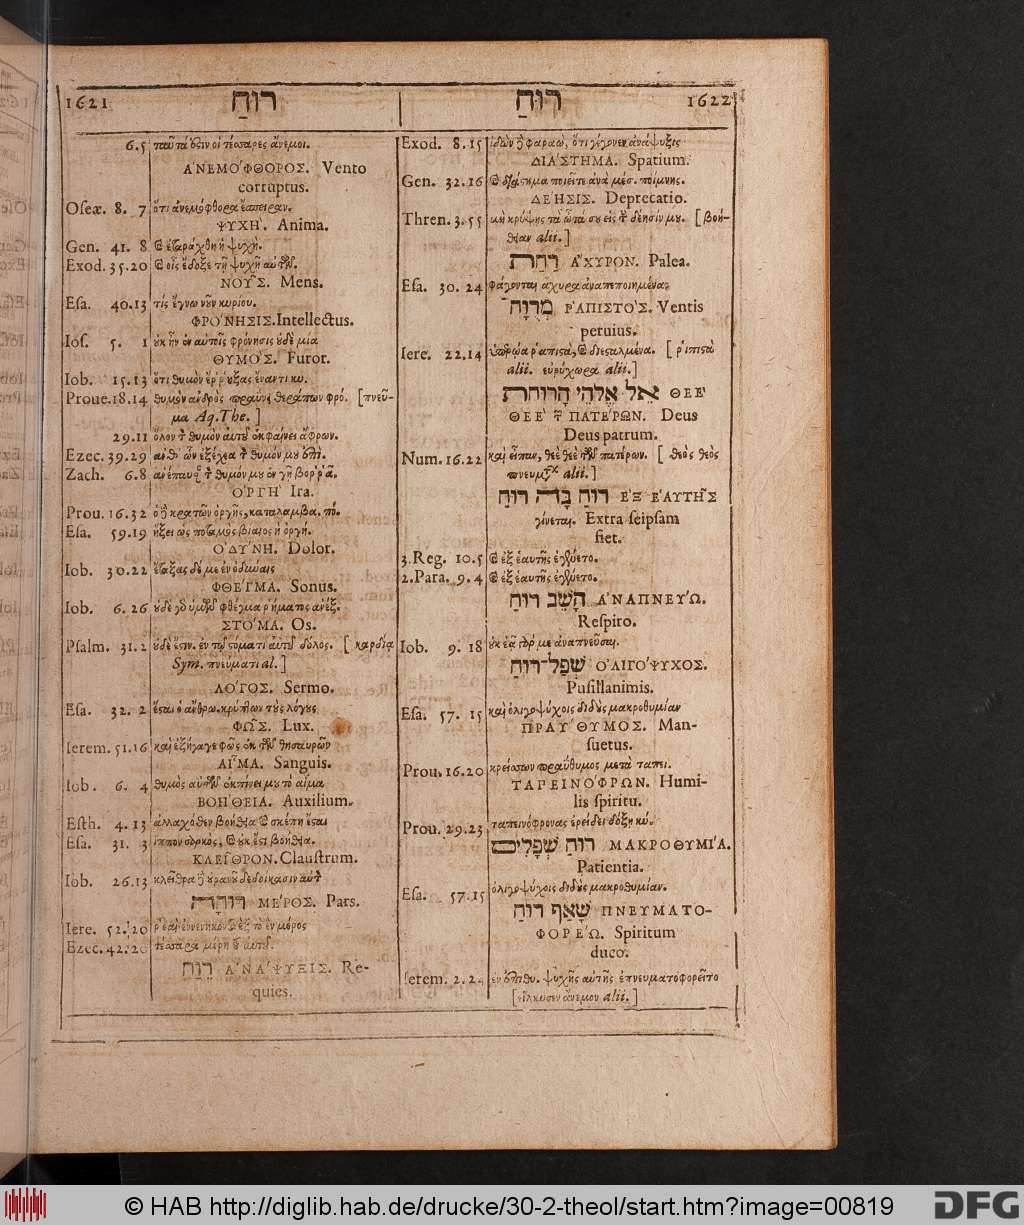 1621 רוּחַ
6.5 ταῦτά ἐστιν οἱ τέσσαρες ἄνεμοι.
ἈΝΕΜΟΦΘΟΡΟΣ. Vento
corruptus.
Oseæ. 8. 7 ὅτι ἀνεμόφθορα ἔσπειραν.
ΨΥΧῊ. Anima.
Gen. 41. 8 ἐταράχθη ἡ ψυχὴ.
Exod. 35.20 οἷς ἔδοξε τῇ ψυχῇ αὐτῶν.
ΝΟΥ͂Σ. Mens.
Esa. 40.13 τίς ἔγνω νοῦν κυρίου.
ΦΡΟΝΗΣΙΣ. Intellectus.
Ios. 5. 1 οὐκ ἦν ἐν αὐτοῖς φρόνησις οὐδὲ μία
ΘΥΜΟΣ. Furor.
Iob. 15.13 ὅτι θυμὸν ἔρρηξας ἔναντι κυ.
Proue.18.14 θυμὸν ἀνδρὸς πραΰνει θεράπων φρό. [πνεῦ-
μα Aq. The.]
29.11 ὅλον τὸν θυμὸν αὐτοῦ ἐκφαίνει ἄφρων.
Ezec. 39.29 ἀνθ' ὧν ἐξέχεα τὸν θυμόν μου ἐπὶ.
Zach. 6.8 τὸν θυμόν μου ἐν γῇ βορρᾶ.
ὈΡΓῊ Ira.
Prou. 16.32 ὁ δὲ κρατῶν ὀργῆς, καταλαμβα. πό.
Esa. 59.19 ἥξει ὡς ποταμὸς βίαιος ἡ ὀργή.
ὈΔΥΝΗ. Dolor.
Iob. 30.22 ἔταξας δέ με ἐν ὀδύναις
ΦΘΕΓΜΑ. Sonus.
Iob. 6. 26 οὐδὲ γὰρ ὑμῶν φθέγμα ῥήματος ἀνέξ.
ΣΤΟΜΑ. Os.
Psalm. 31.2 οὐδέ ἐστιν ἐν τῷ στόματι αὐτοῦ δόλος. [καρδίᾳ
Sym. πνεύματι al.]
ΛΟΓΟΣ. Sermo.
Esa. 32. 2 ἔσται ὁ ἄνθρω. κρύπτων τοὺς λόγους
ΦΩ͂Σ. Lux.
Ierem. 51.16 καὶ ἐξήγαγε φῶς ἐκ τῶν θησαυρῶν
ΑἿΜΑ. Sanguis.
Iob. 6. 4 θυμὸς αὐτῶν ἐκπίνει μου τὸ αἷμα
ΒΟΗΘΕΙΑ. Auxilium.
Esth. 4. 13 ἀλλαχόθεν βοήθεια σκέπη ἔσται
Esa. 31. 3 ἵππων σάρκας, οὐκ ἔστι βοήθεια.
ΚΛΕΙ͂ΘΡΟΝ. Claustrum.
Iob. 26.13 κλεῖθρα δὲ οὐρανοῦ δεδοίκασιν αὐτὸν
רְוָחָה ΜΕΡΟΣ. Pars.
Iere. 52. 20
Ezec. 42. 20 τέσσαρα μέρη αὐτοῦ.
רֶוַח ἈΝΑΨΥΞΙΣ. Re-
quies.
רוּחַ 1622
Exod. 8.15 ἰδὼν δὲ φαραὼ, ὅτι γέγονεν ἀνάψυξις
ΔΙΑΣΤΗΜΑ. Spatium.
Gen. 32.16 διάστημα ποιεῖτε ἀνὰ μέσ. ποίμνης.
ΔΕΗΣΙΣ. Deprecatio.
Thren. 3.55 μὴ κρύψῃς τὰ ὦτά σου εἰς τὴν δέησίν μου. [βοή-
θειαν alii.]
רַחַת ἈΧΥΡΟΝ. Palea.
Esa. 30. 24 φάγονται ἄχυρα ἀναπεποιημένα.
מְרֻוָּח ῬΑΠΙΣΤΟΣ. Ventis
peruius.
Iere. 22.14 ὑπερῷα ῥαπιστὰ, διεσταλμένα. [ῥιπιστὰ
alii. εὐρύχωρα alii.]
אֵל אֱלֹהֵי הָרוּחֹת ΘΕῈ
ΘΕῈ ΠΑΤΕΡΩΝ. Deus
Deus patrum.
Num. 16.22 καὶ εἶπαν, θεὲ θεὲ τῶν πατέρων. [θεὸς θεὸς
alii.]
רוּחַ בָּדָה רוּחַ ἘΞ ἙΑΥΤΗ͂Σ
γίνεται. Extra seipsam
fiet.
3. Reg. 10.5 ἐξ ἑαυτῆς ἐγένετο.
2. Para. 9.4 ἐξ ἑαυτῆς ἐγένετο.
הָשֵׁב רוּחַ ἈΝΑΠΝΕΥΩ.
Respiro.
Iob. 9. 18 οὐκ ἐᾷ γάρ με ἀναπνεῦσαι.
שְׁפַל־רוּחַ ὈΛΙΓΟΨΥΧΟΣ.
Pusillanimis.
Esa. 57. 15 καὶ ὀλιγοψύχοις διδοὺς μακροθυμίαν
ΠΡΑΥΘΥΜΟΣ. Man-
suetus.
Prou. 16.20 κρείσσων πραΰθυμος μετὰ ταπει.
ΤΑΠΕΙΝΟΦΡΩΝ. Humi-
lis spiritu.
Prou. 29.23 ταπεινόφρονας ἐρείδει δόξῃ κύ.
רוּחַ שְׁפָלִים ΜΑΚΡΟΘΥΜΙΑ.
Patientia.
Esa. 57.15 ὀλιγοψύχοις διδοὺς μακροθυμίαν.
שָׁאַף רוּחַ ΠΝΕΥΜΑΤΟ-
ΦΟΡΕΩ. Spiritum
duco.
Ierem. 2.2 ἐν ἐπιθυ. ψυχῆς αὐτῆς ἐπνευματοφορεῖτο
[εἵλκυσεν ἄνεμον alii.]
© HAB http://diglib.hab.de/drucke/30-2-theol/start.htm?image=00819
DFG